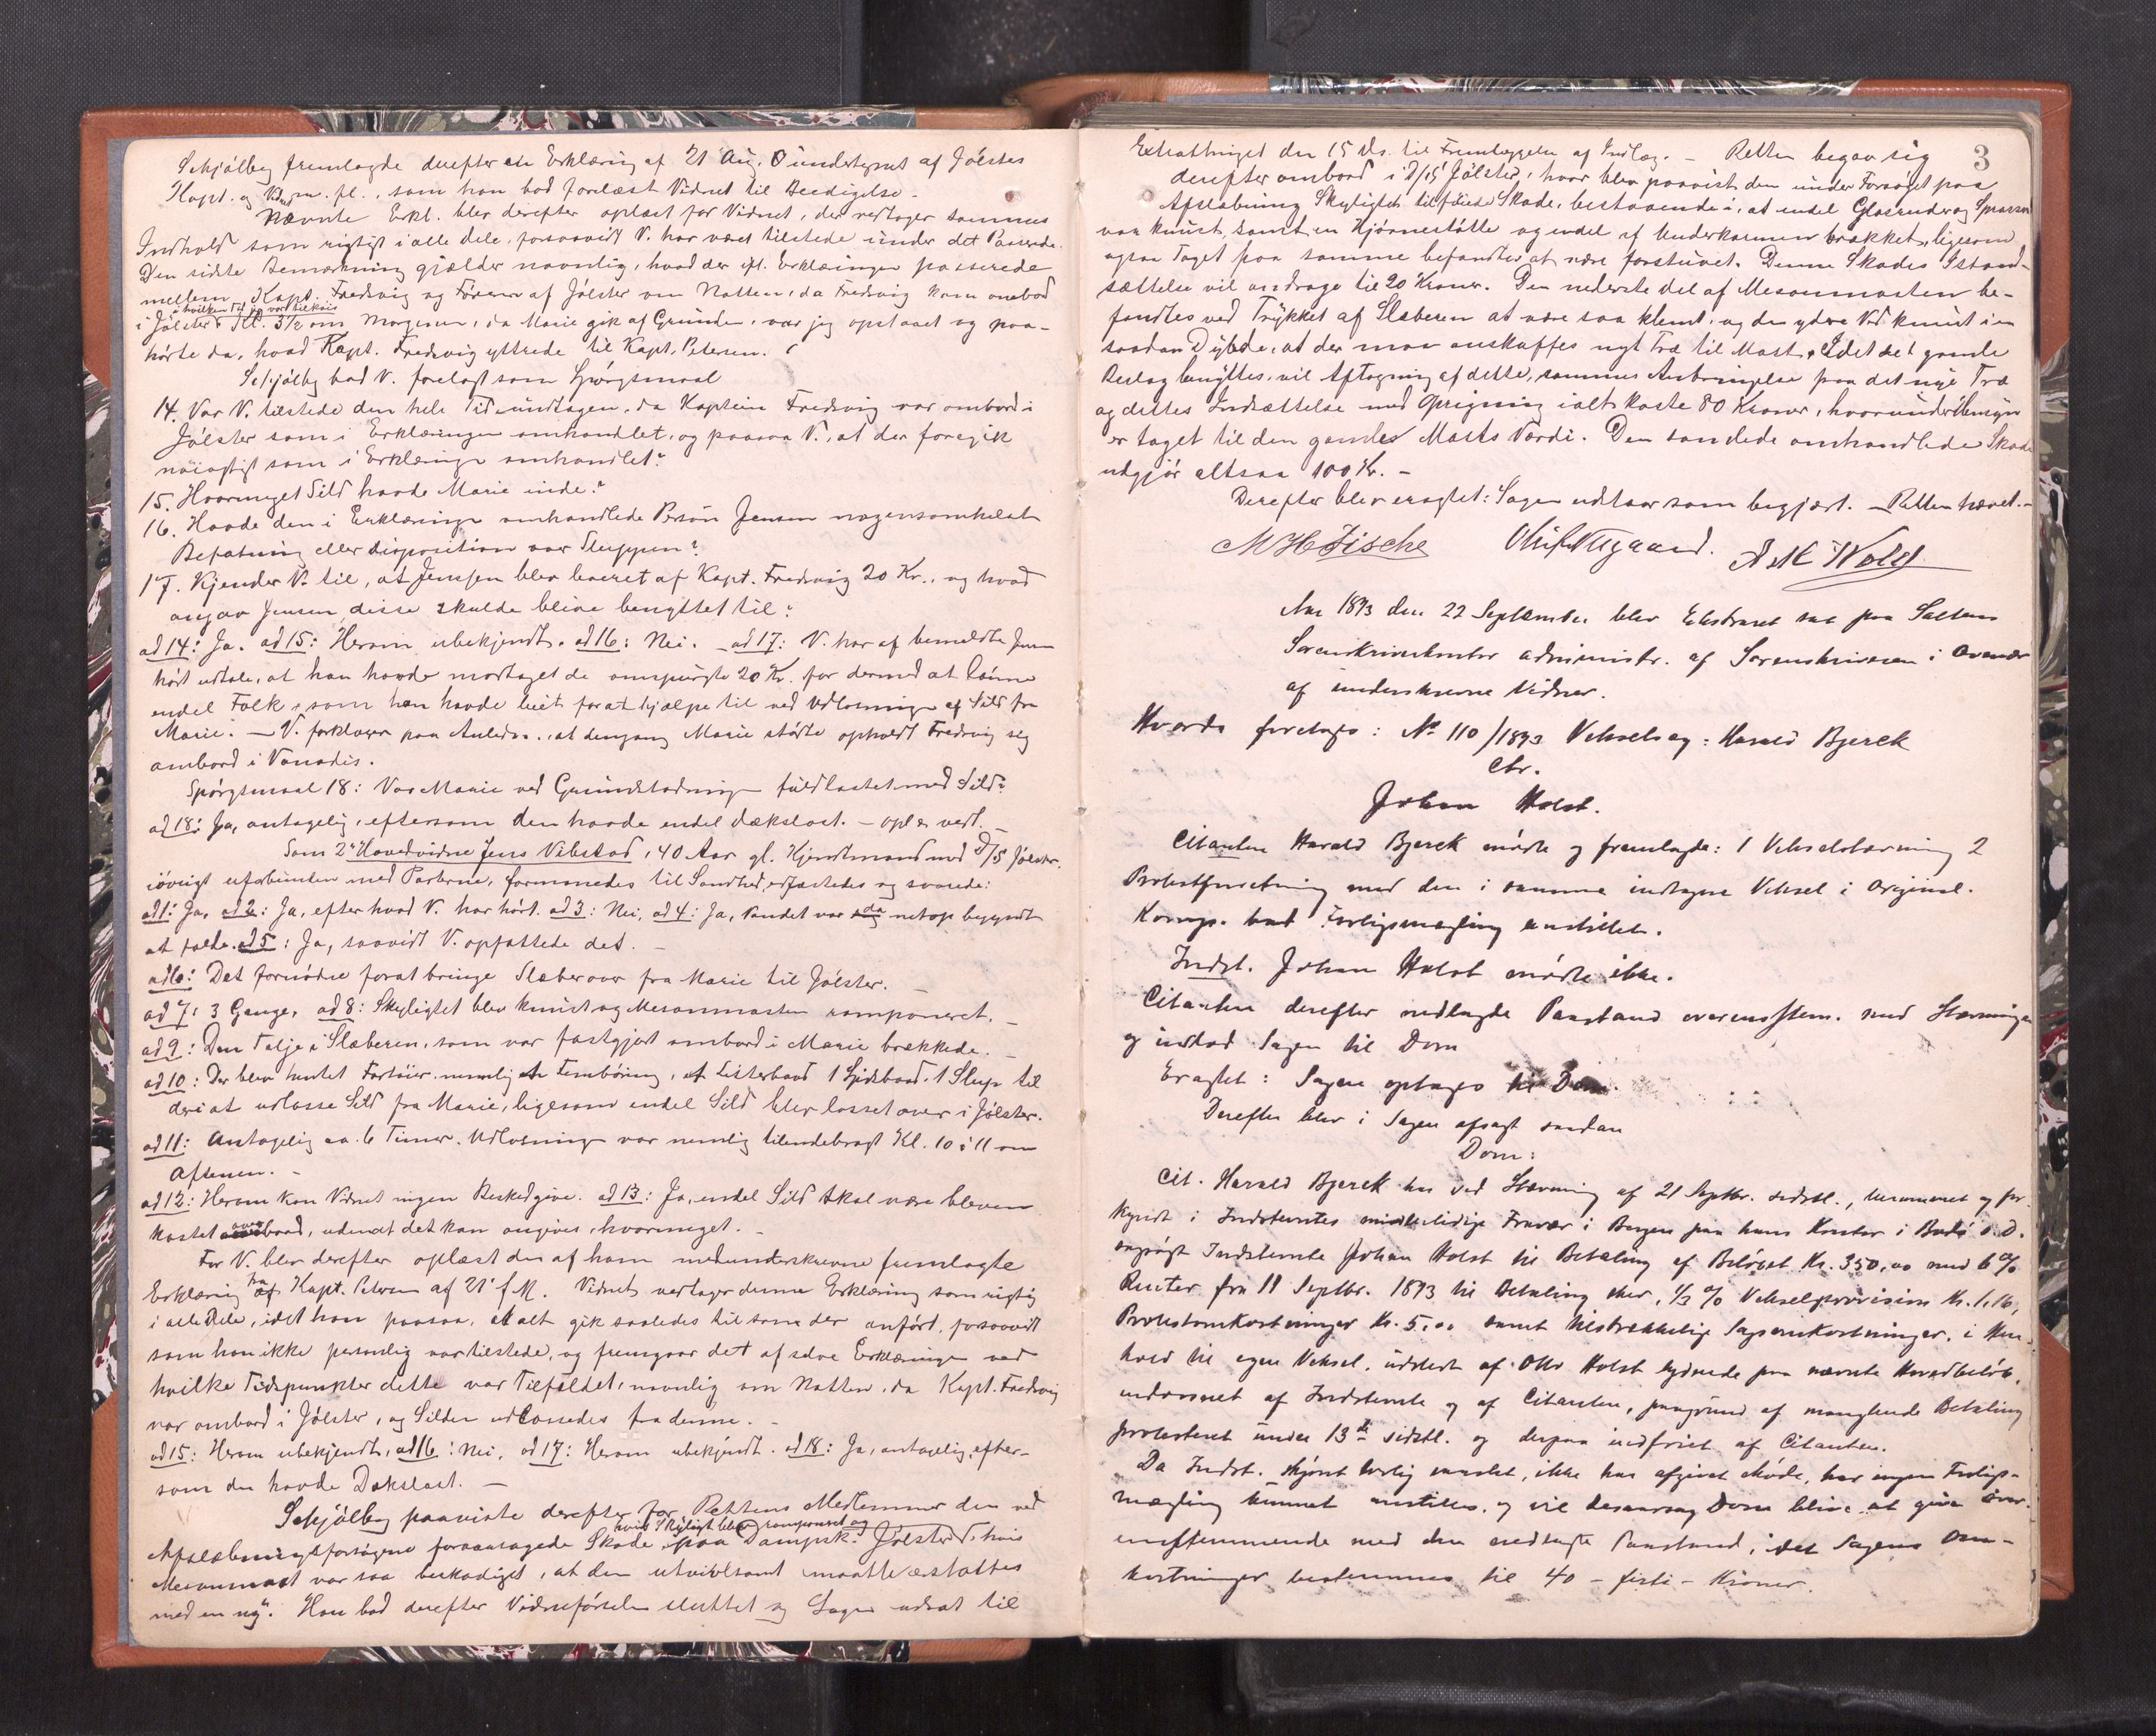 Schjölberg fremlagde derefter en Erklæring af 21 Aug. undertegnet af Jölsters
Kapt. og Vidnet m. fl., som han bad forelæst Vidnet til Beedigelse.
Nævnte Erkl. blev derefter oplæst for Vidnet, der vedtager sammes
Indhold som rigtigt i alle dele, forsaavidt V. har været tilstede under det Passerede.
Den sidste Bemærkning gjælder navnlig, hvad der ifl. Erklæringen passerede
mellem Kapt. Fredsvig og Föreren af Jölster om Natten, da Fredsvig kom ombord
i hvilken Tid jeg var tilköis
i Jölster. Kl. 3½ om Morgenen, da Marie gik af Grunden, var jeg opstaaet og paa-
hørte da, hvad Kapt. Fredsvig yttrede til Kapt. Petersen.
Schjölbg bad V. forelagt som Spörgsmaal
14. Var V. tilstede den hele Tid undtagen, da Kaptein Fredsvig var ombord i
Jölster som i Erklæringen omhandlet, og paasaa V., at der foregik
nöiagtigt som i Erklæringen omhandlet?
15. Hvormeget Sild havde Marie inde?
16. Havde den i Erklæringen omhandlede Person Jensen nogensomhelst
Befatning eller disposition over Sluppen?
17. Kjender V. til, at Jenssen blev leveret af Kapt. Fredsvig 20 Kr., og hvad
angav Jensen disse skulde blive benyttet til?
ad 14: Ja. ad 15: Herom ubekjendt. ad 16: Nei. ad 17: V. har af bemeldte Jensen
hört udtale, at han havde modtaget de omspurgte 20 Kr. for dermed at lönne
endel Folk, som han havde leiet for at hjælpe til ved Udlosningen af Sild fra
Marie. — V. forklarer paa Anledn., at dengang Marie stödte opholdt Fredsvig sig
ombord i Vanadis.
Spörgsmaal 18: Var Marie ved Grundstödningen fuldlastet med Sild?
ad 18: Ja, antagelig, eftersom den havde endel dækslast. — opl. & vedt. —
Som 2det Hovedvidne Jens Vibstad, 40 Aar gl. Kjendtmand med D/S Jölster,
iövrigt uforbunden med Parterne, formanedes til Sandhed, edfæstedes og svarede:
ad 1: Ja, ad 2: Ja, efter hvad V. har hört. ad 3: Nei, ad 4: Ja, Vandet var da netop begyndt
at falde. ad 5: Ja, saavidt V. opfattede det. —
ad 6: Det fornödne for at bringe Slæber over fra Marie til Jölster. —
ad 7: 3 Gange, ad 8: Skylightet blev knust og Mesanmasten ramponeret. —
ad 9: Den Talje i Slæberen, som var fastgjort ombord i Marie brækkede. —
ad 10: Der blev hentet Fartöier, nemlig en Fembøring, et Listerbaad 1 Spidsbaad, 1 Slup til
deri at udlosse Sild fra Marie, ligesom endel Sild blev losset over i Jölster.
ad 11: Antagelig ca. 6 Timer. Udlosningen var nemlig tilendebragt Kl. 10 à 11 om
Aftenen. —
ad 12: Herom kan Vidnet ingen Beskedgive. ad 13: Ja, endel Sild skal være bleven
kastet overbord, uden at det kan angives, hvormeget. —
For V. blev derefter oplæst den af ham medunderskrevne fremlagte
Erklæring fra Kapt. Petersen af 21' f. M. Vidnet vedtager denne Erklæring som rigtig
i alle Dele, idet han paasaa, at alt gik saaledes til som der anfört, forsaavidt
som han ikke personlig var tilstede, og fremgaar det af selve Erklæringen ved
hvilke Tidspunkter dette var Tilfældet, navnlig om Natten, da Kapt. Fredsvig
var ombord i Jölster, og Silden udlossedes fra denne. —
ad 15: Herom ubekjendt, ad 16: Nei, ad 17: Herom ubekjendt. ad 18: Ja, antagelig, efter-
som den havde Dækslast. —
Schjölberg paaviste derefter for Rettens Medlemmer den ved
hvis Skyligt blev ramponeret og
Afslæbningsforsögene foraarsagede Skade paa Dampsk. Jölster, hvis
Mesanmast var saa beskadiget, at den utvivlsomt maatte erstattes
med en ny. Han bad derefter Vidneförselen sluttet og Sagen udsat til
3
Extrathinget den 15 ds. til Fremlæggelse af Indlæg. — Retten begav sig
derefter ombord i D/S Jölster, hvor blev paavist den under Forsöget paa
Afslæbning Skylightet tilföiede Skade, bestaaende i, at endel Glasruder og Sprosser
var knust, samt en Hjörnestötte og endel af Underkarmen brækket, ligesom
ogsaa Taget paa samme befandtes at være forskuvet. Denne Skades Istand-
sættelse vil andrage til 20 Kroner. Den nederste del af Mesanmasten be-
fandtes ved Trykket af Slæberen at være saa klemt, og den ydre Ved knust i en
saadan Dybde, at der maa anskaffes nyt Træ til Mast. Idet det gamle
Beslag benyttes, vil Aftagning af dette, sammes Anbringelse paa det nye Træ
og dettes Indsættelse med Oprigning ialt koste 80 Kroner, hvorunder Hensyn
er taget til den gamles Masts Værdi. Den saaledes omhandlede Skade
udgjör altsaa 100 Kr. —
Derefter blev eragtet: Sagen udstaar som begjært. — Retten hævet. —
M H Fische Oluf Aagaard. A M Wold
Aar 1893 den 22 September blev Extraret sat paa Saltens
Sorenskriverkontor administr. af Sorenskriveren i Overvær
af underskrevne Vidner.
Hvorda foretoges: No 110/1893 Vekselsag: Harald Bjerck
ctr.
Johan Holst.
Citanten Harald Bjerck mødte og fremlagde: 1 Vekselstævning 2
Protestforretning med den i samme indtagne Veksel i Original.
Komp. bad Forligsmægling anstillet.
Indst. Johan Holst mødte ikke.
Citanten derefter nedlagde Paastand overensstem. med Stævningen
og indlod Sagen til Dom
Eragtet: Sagen optages til Dom.
Derefter blev i Sagen afsagt saadan
Dom:
Cit. Harald Bjerck har ved Stævning af 21 Septbr. sidstl., berammet og for-
kyndt i Indstevntes midlertidige Fravær i Bergen paa hans Kontor i Bodø s. D.
søgt Indstevnte Johan Holst til Betaling af Beløbet Kr. 350,00 med 6 %
Renter fra 11 Septbr. 1893 til Betaling sker, 1/3 % Vekselprovision Kr. 1,16,
Protestomkostninger Kr. 5,00 samt tilstrækkelige Sagsomkostninger, i Hen-
hold til egen Veksel, udstedt af Otto Holst lydende paa nævnte Hovedbeløb,
endosseret af Indstevnte og af Citanten, paagrund af manglende Betaling
protesteret under 13de sidstl. og derpaa indfriet af Citanten.
Da Indst. skjønt lovlig varslet, ikke har afgivet Møde, har ingen Forligs-
mægling kunnet anstilles, og vil desaarsag Dom blive at give over-
ensstemmende med den nedlagte Paastand, idet Sagens Om-
kostninger bestemmes til 40 - firti - Kroner.